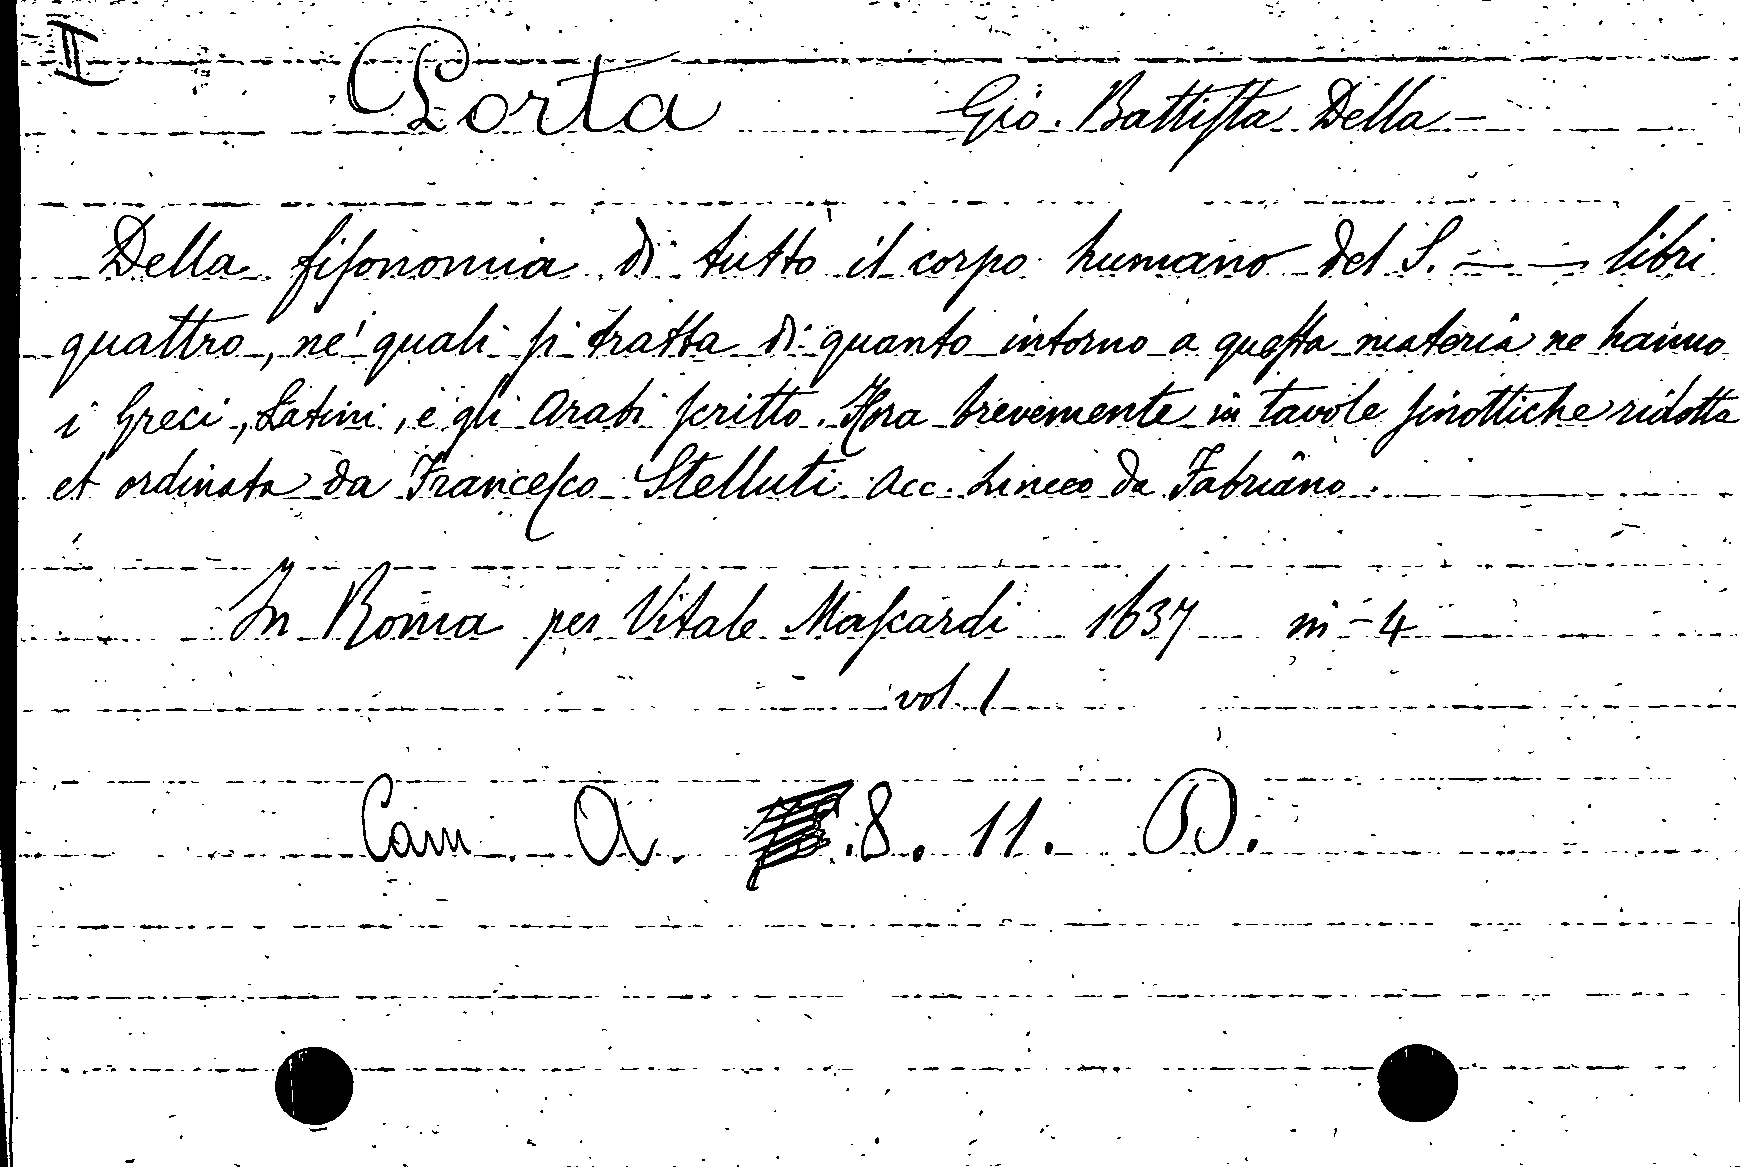 II
Porta Gio. Battiſta Della -
Della fiſonomia di tutto il corpo humano del S. — — libri
quattro, ne' quali ſi tratta di quanto intorno a queſta materia ne hanno
i Greci, Latini, e gli Arabi ſcritto. Hora brevemente in tavole ſinottiche ridotta
et ordinata da Franceſco Stelluti Acc. Linceo da Fabriano.
In Roma per Vitale Maſcardi 1637 in-4
vol. 1
Cam. A. .8. 11. D.